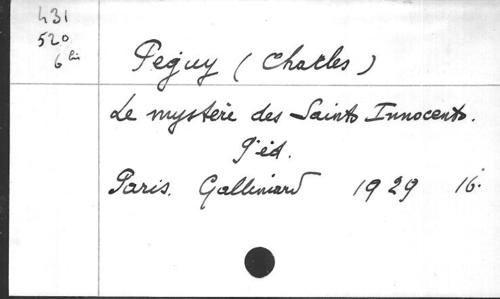 431
520
6 bis
Peguy (Charles)
Le mystère des Saints Innocents.
9e éd.
Paris. Gallimard 1929 16.